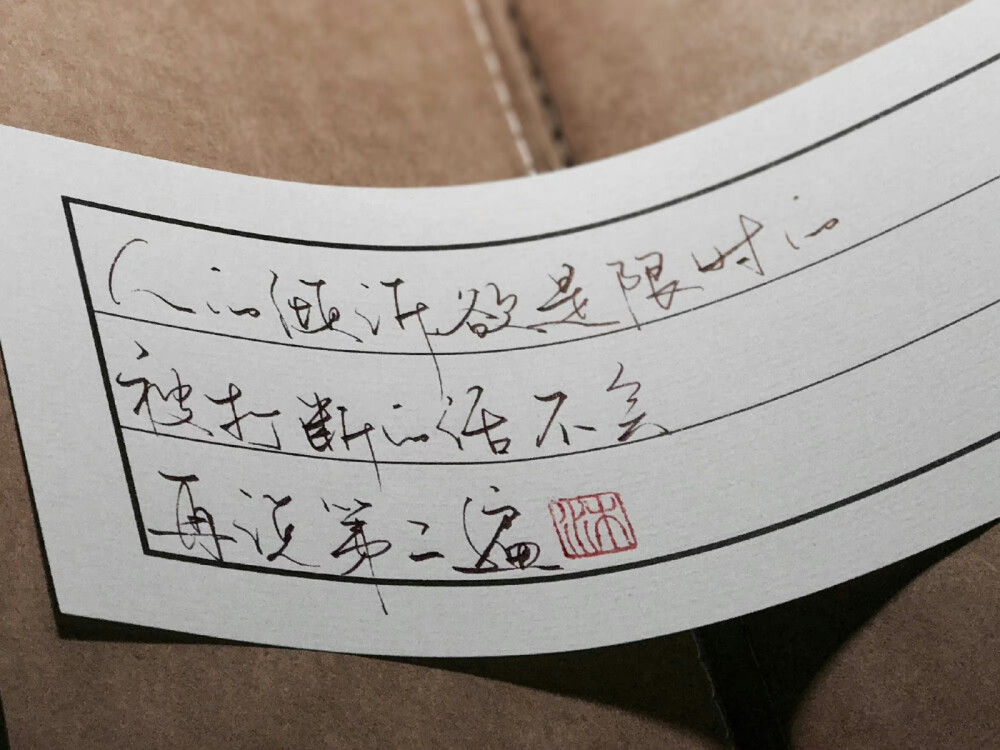 人的倾诉欲是限时的
被打断的话不会
再说第二遍